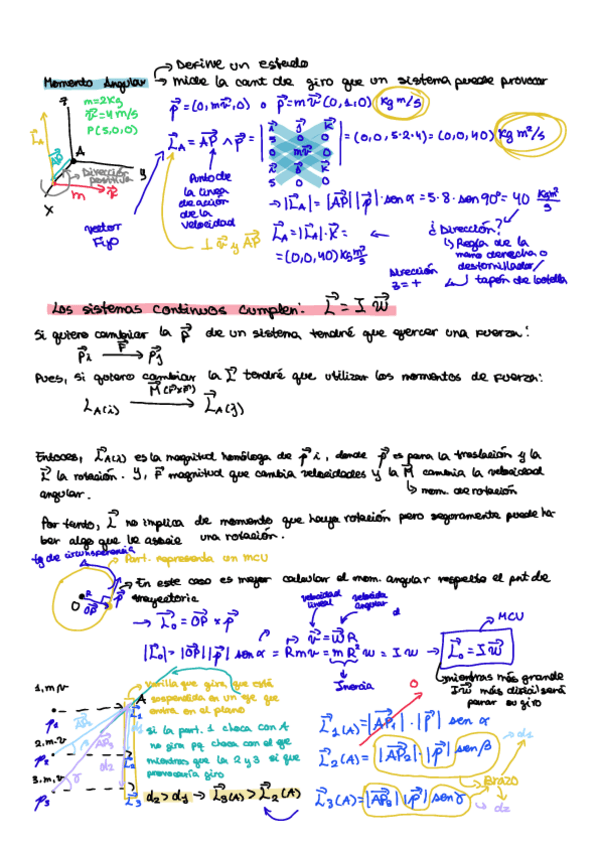 → Define un estado
Momento Angular → mide la cant de giro que un sistema puede provocar
z
m=2kg
v⃗=4 m/s
P(5,0,0)
L⃗A
AP
A
y
Dirección positiva
x
m
v⃗
p⃗=(0,mv⃗,0) o p⃗=m v⃗ (0,1,0) kg m/s
L⃗A = AP⃗ ∧ p⃗ = | i⃗ j⃗ k⃗ | = (0,0,5·2·4) = (0,0,40) kg m²/s
5 0 0
0 mv⃗ 0
i⃗ j⃗ k⃗
5 0 0
vector Fijo
Punto de la linea de acción de la velocidad
⊥ v⃗ y AP⃗
→ |L⃗A| = |AP⃗| |p⃗| · sen α = 5·8·sen 90° = 40 kgm²/s
L⃗A = |L⃗A| · k⃗ = ←
= (0,0,40) kg m²/s
¿Dirección?
↳ Regla de la mano derecha o destornillador/ tapón de botella
Dirección z = + ←
Los sistemas continuos cumplen: L⃗ = I w⃗
Si quiero cambiar la p⃗ de un sistema tendré que ejercer una fuerza:
p⃗i F⃗ → p⃗f
Pues, si quiero cambiar la L⃗ tendré que utilizar los momentos de fuerza:
LA(i) M⃗(r⃗×F⃗) → L⃗A(f)
Entonces, L⃗A(i) es la magnitud homóloga de p⃗i, donde p⃗ es para la traslación y la
L⃗ la rotación. Y, F⃗ magnitud que cambia velocidades y la M⃗ cambia la velocidad
angular.
↳ mom. de rotación
Por tanto, L⃗ no implica de momento que haya rotación pero seguramente puede ha-
ber algo que le asocie una rotación.
tg de circunferencia
→ Part. representa un MCU
R
O
OP⃗
p⃗
→ En este caso es mejor calcular el mom. angular respecto el pnt de
trayectoria
→ L⃗o = OP⃗ × p⃗
velocidad lineal
velocidad angular
v⃗ = w⃗ R
|L⃗o| = |OP⃗| |p⃗| sen α = R m v = m R² w = I w → L⃗o = I w⃗
Inercia
MCU
mientras más grande
I w⃗ más difícil será
parar su giro
1,m,v
p1
2,m,v
p2
3,m,v
p3
AP⃗2
AP⃗3
A
L⃗1
L⃗2
L⃗3
d1
d2
→ varilla que gira que está
suspendida en un eje que
entra en el plano
si la part. 1 choca con A
no gira pq choca con el eje
mientras que la 2 y 3 si que
provocaría giro
d2 > d1 → L⃗3(A) > L⃗2(A)
0
L⃗1(A) = |AP⃗1| · |p⃗| sen α
L⃗2(A) = |AP⃗2| · |p⃗| sen β
→ d1
Brazo
L⃗3(A) = |AP⃗3| |p⃗| sen γ
→ d2